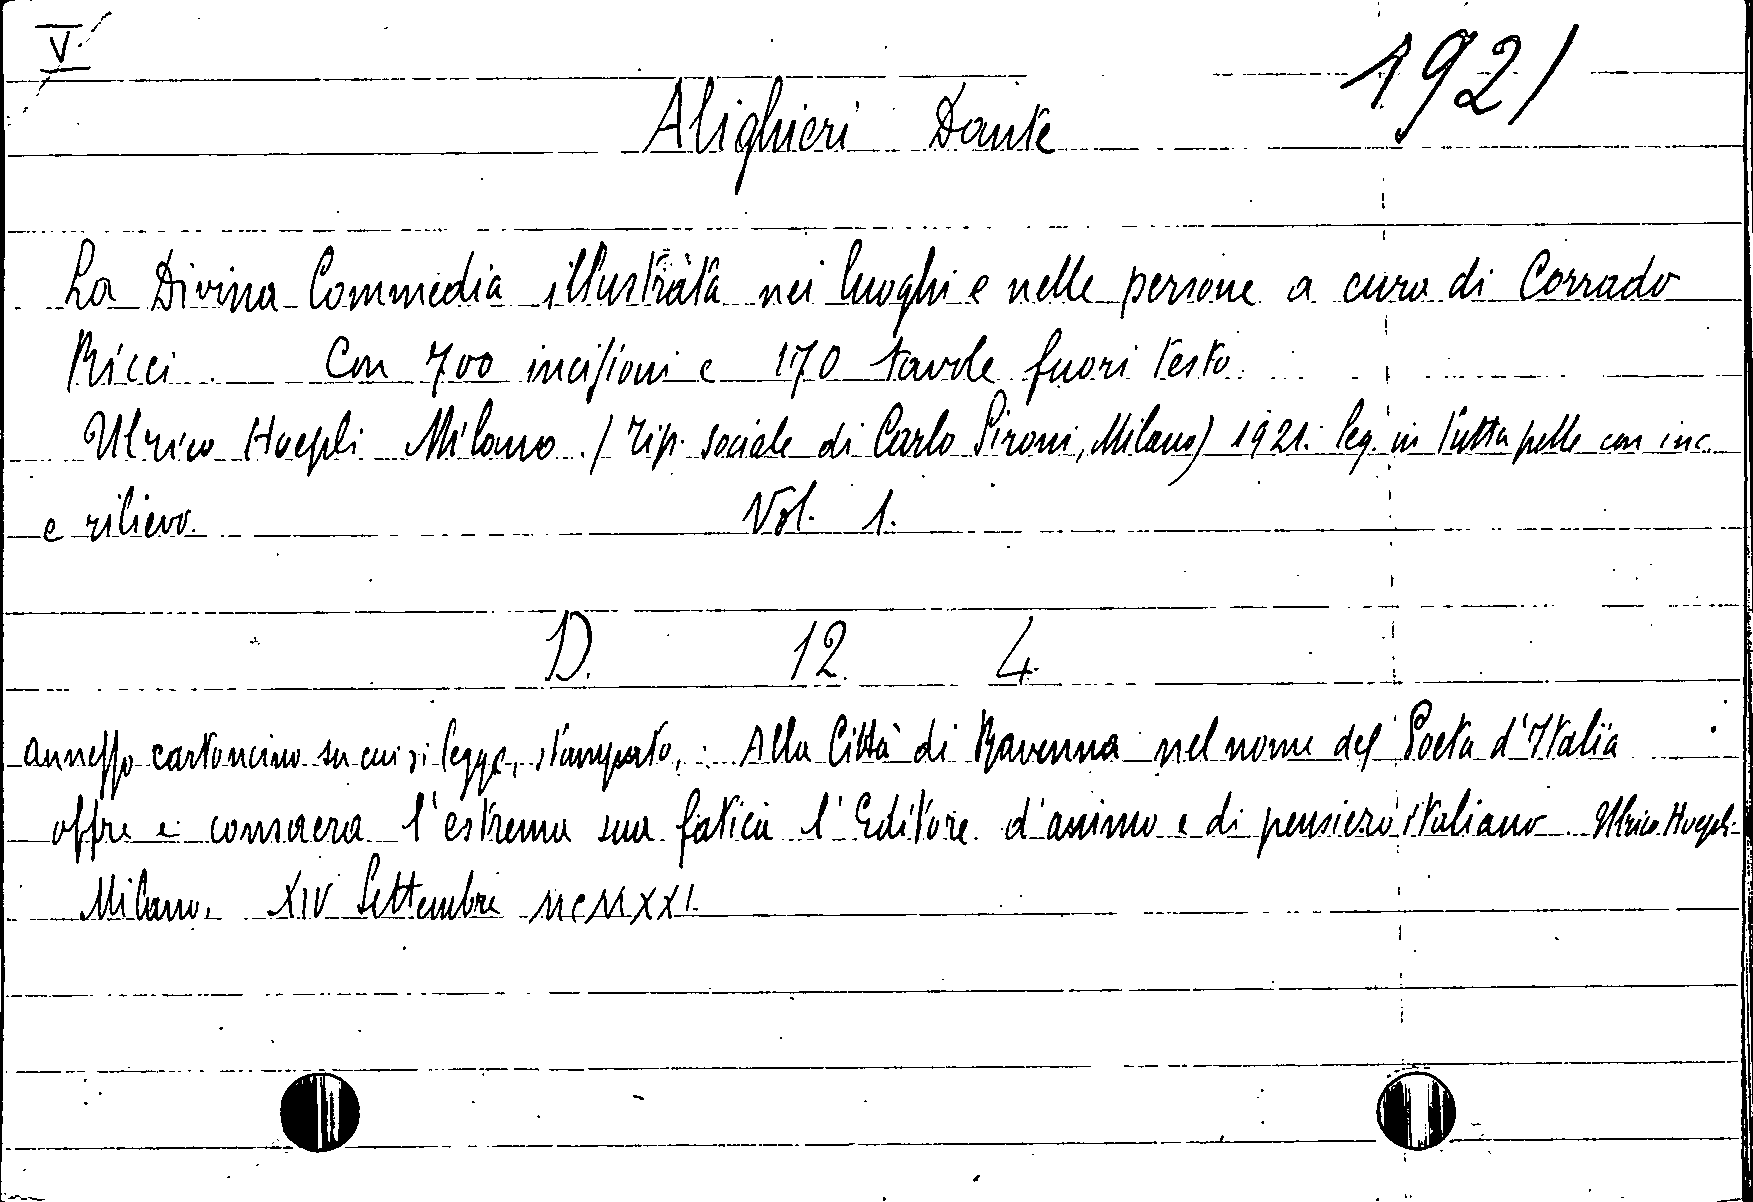 V
1921
Alighieri Dante
La Divina Commedia illustrata nei luoghi e nelle persone a cura di Corrado
Ricci. Con 700 incisioni e 170 tavole fuori testo.
Ulrico Hoepli Milano. (Tip. sociale di Carlo Sironi, Milano) 1921. leg. in tutta pelle con inc.
e rilievo. Vol. 1.
D. 12. 4.
annesso cartoncino su cui si legge, stampato,: Alla Città di Ravenna nel nome del Poeta d'Italia
offre e consacra l'estrema sua fatica l'Editore d'animo e di pensiero italiano Ulrico Hoepli-
Milano, XIV Settembre MCMXXI.